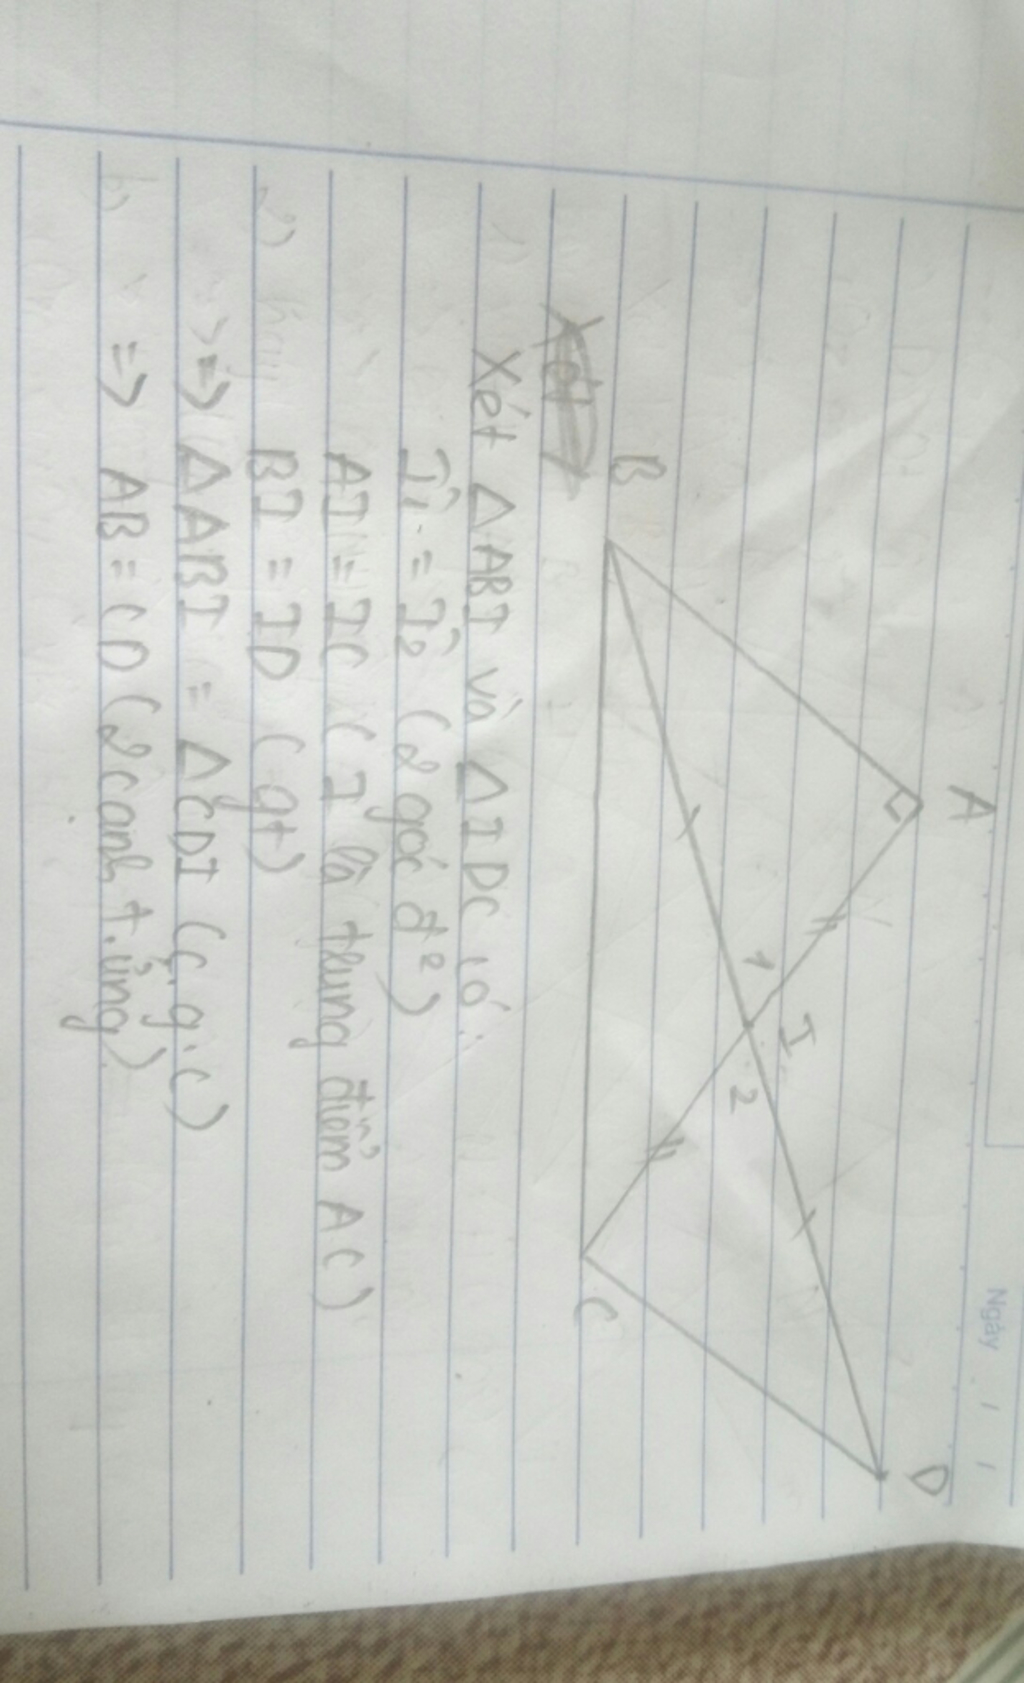 Ngày / /
A
D
I
1
2
B
C
Xét
Xét Δ ABI và Δ IDC có:
Î1 = Î2 (2 góc đ²)
AI = IC ( I là trung điểm AC)
BI = ID ( gt)
=> Δ ABI = Δ CDI (c.g.c)
=> AB = CD (2 cạnh t.ứng)